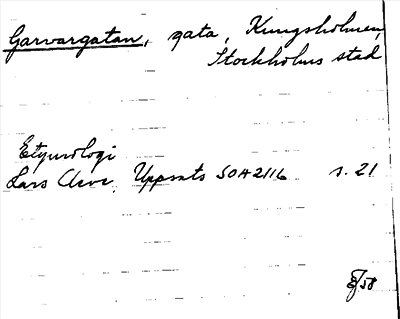 Garvargatan, gata, Kungsholmen,
Stockholms stad
Etymologi
Lars Cleve, Uppsats SOHA2116 s. 21
58